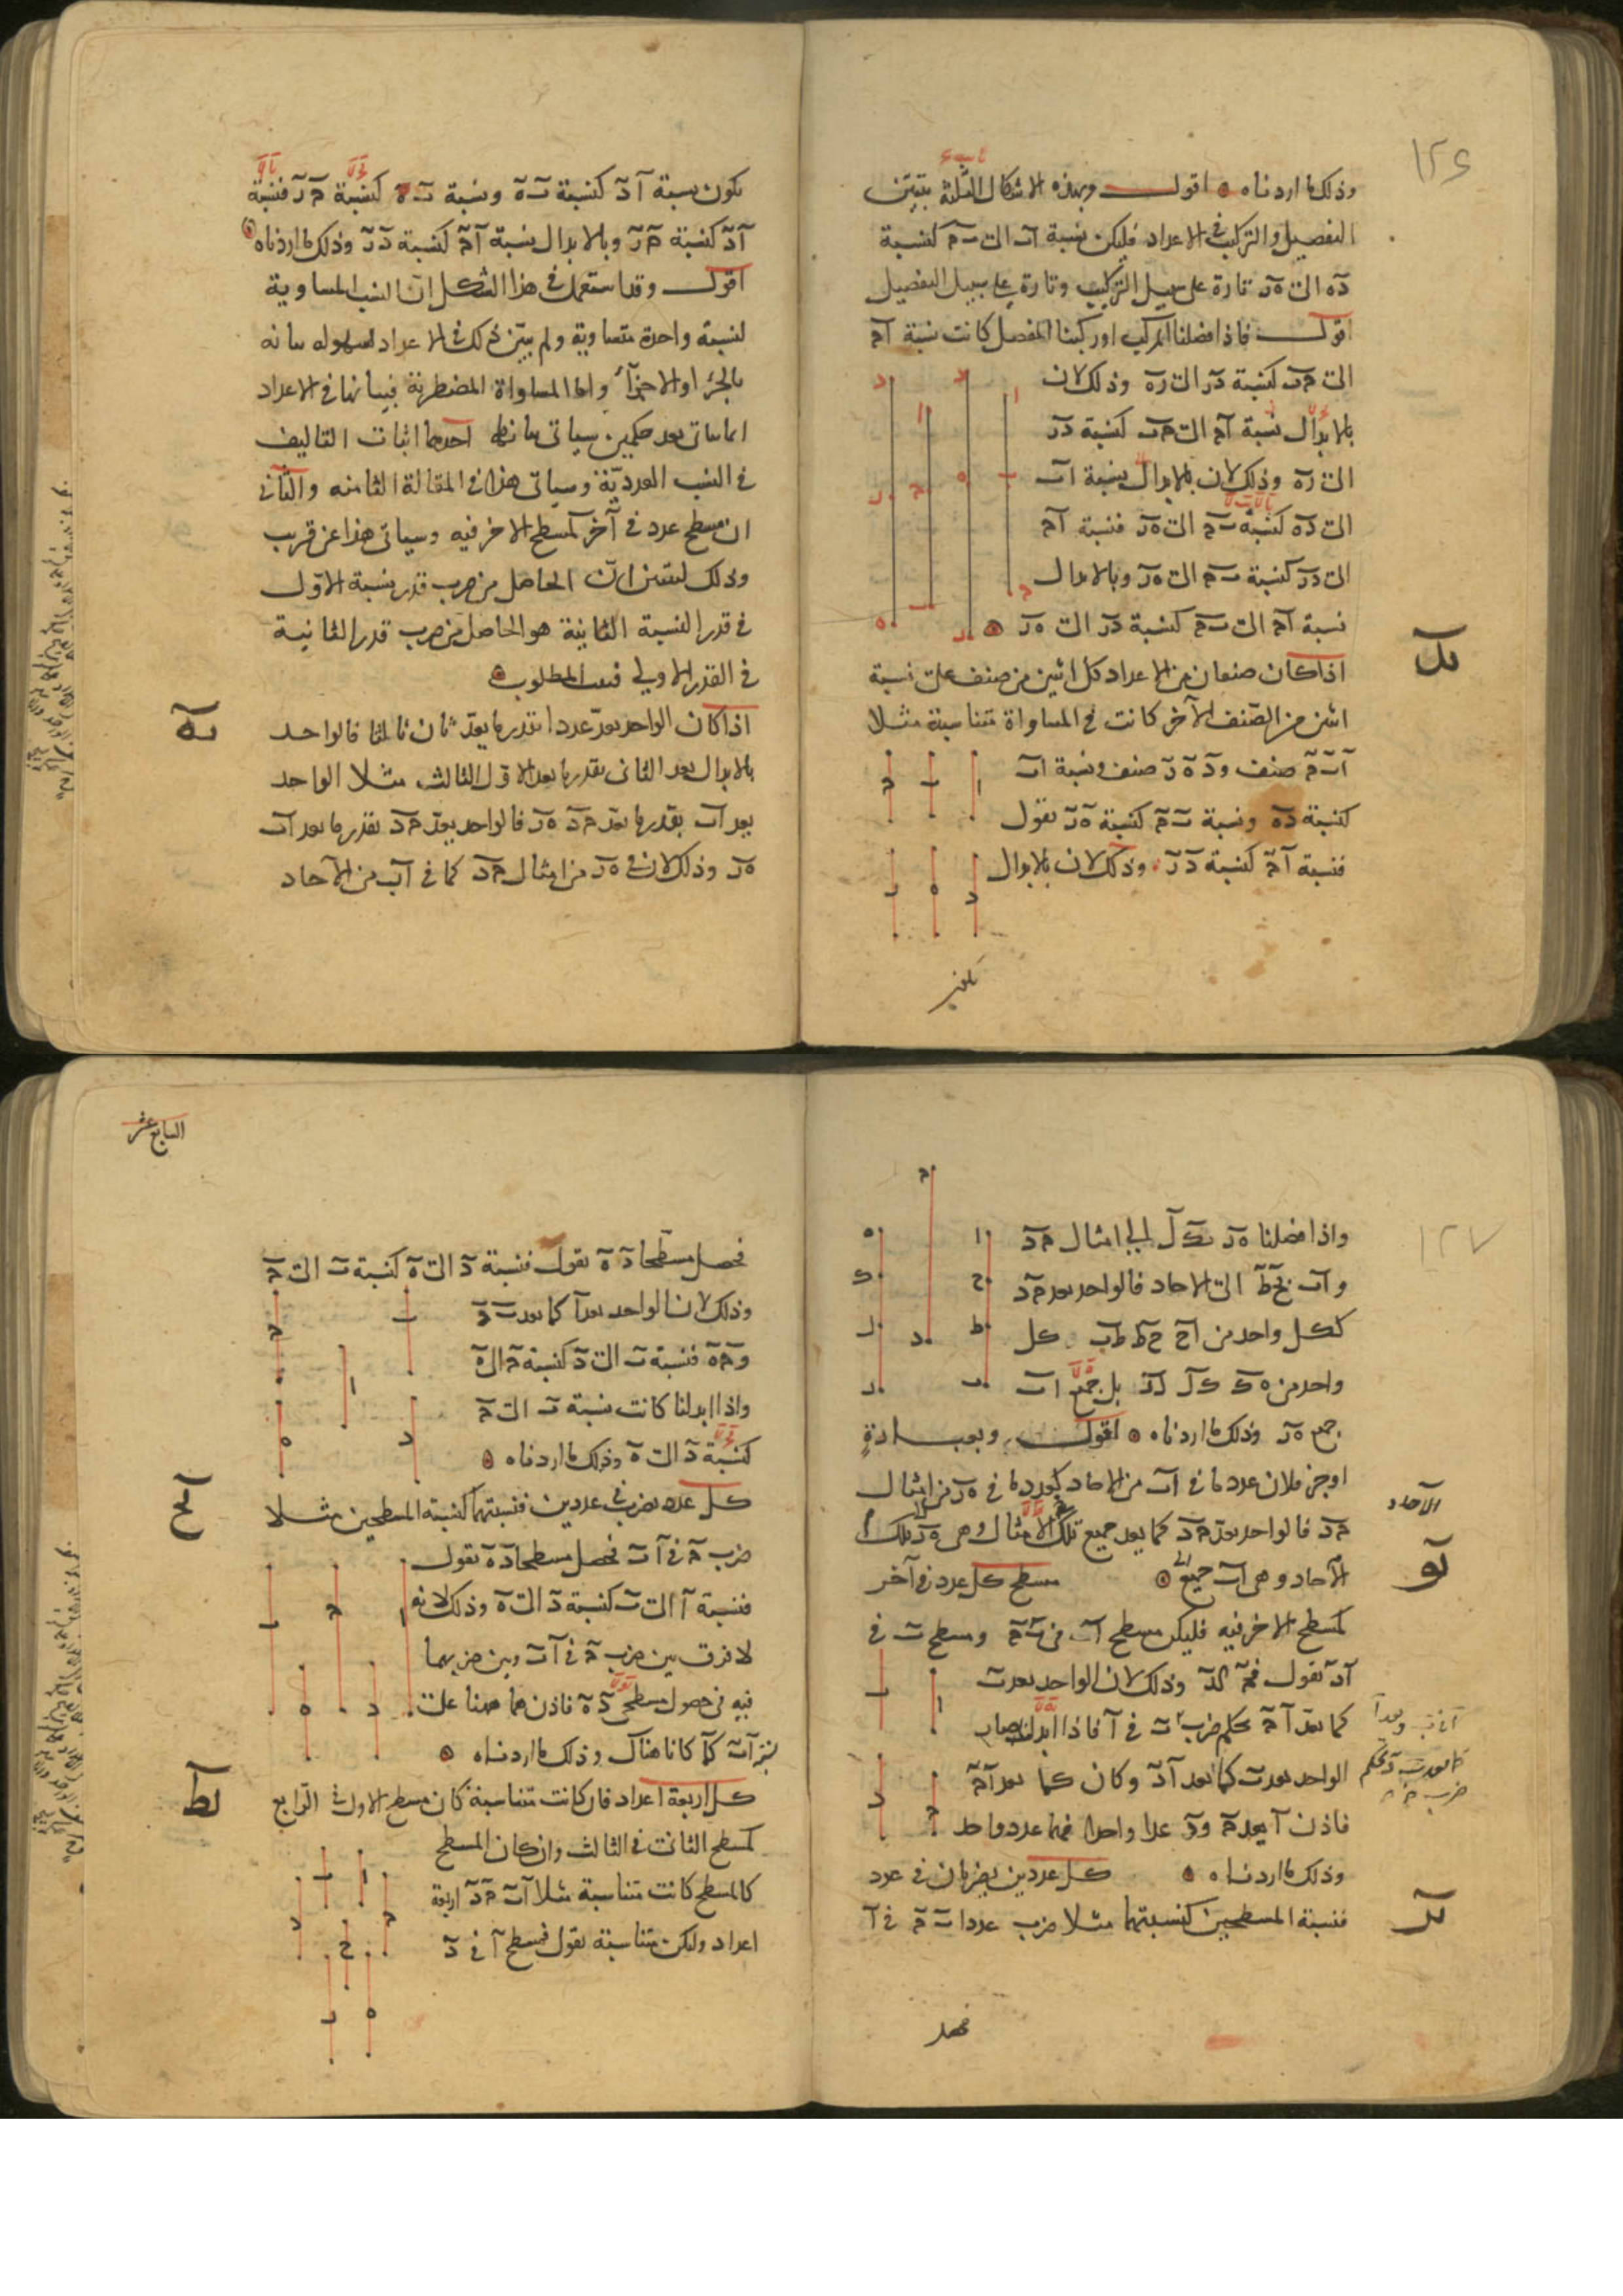 ١٢٦
وذلك ما اردناه اقول وبهذه الاشكال الثلثة يتبين
التفصيل والتركيب في الاعداد فليكن نسبة اب الى بج كنسبة
ده الى هز تارة على سبيل التركيب وتارة على سبيل التفصيل
اقول فاذا فصلنا المركب او ركبنا المفصل كانت نسبة اج
الى جب كنسبة دز الى زه وذلك لان
بالابدال نسبة اج الى جب كنسبة دز
الى زه وذلك لان بالابدال نسبة اب
الى ده كنسبة بج الى هز فنسبة اج
الى دز كنسبة بج الى هز وبالابدال
نسبة اج الى بج كنسبة دز الى هز
يد
اذا كان صنفان من الاعداد كل اثنين من صنف على نسبة
اثنين من الصنف الآخر كانت في المساواة متناسبة مثلا
ا ب ج صنف و د ه ز صنف ونسبة اب
كنسبة ده ونسبة ب ج كنسبة ه ز نقول
فنسبة ا ج كنسبة د ز وذلك لان بالابدال
تكون نسبة ا د كنسبة ب ه ونسبة ب ه كنسبة ج ز فنسبة
ا د كنسبة ج ز وبالابدال نسبة ا ج كنسبة د ز وذلك ما اردناه
اقول وقد استعمل في هذا الشكل ان النسب المساوية
لنسبة واحدة متساوية ولم يبين ذلك في الاعداد لسهولة بيانه
بالجزء او الاجزآء واما المساواة المضطربة فبيانها في الاعداد
انما يتاتى بعد حكمين سياتي بيانهما احدهما اثبات التاليف
في النسب العددية وسياتي هذا في المقالة الثامنة والثاني
ان مسطح عدد في آخر كمسطح الاخر فيه وسياتي هذا عن قريب
وذلك ليتبين ان الحاصل من ضرب قدر نسبة الاول
في قدر النسبة الثانية هو الحاصل من ضرب قدر الثانية
في القدر الاولى فيثبت المطلوب
يه
اذا كان الواحد يعد عددا بقدر ما يعد ثان ثالثا فالواحد
بالابدال يعد الثاني بقدر ما يعد الاول الثالث مثلا الواحد
يعد اب بقدر ما يعد جد هز فالواحد يعد جد بقدر ما يعد اب
هز وذلك لان في هز من امثال جد كما في اب من الآحاد
١٢٧
واذا فصلنا هز بك ل الى امثال جد
واب بح ط الى الاحاد فالواحد يعد جد
ككل واحد من اح حط طب كل
واحد من هك كل لز بل جميع اب
جميع هز وذلك ما اردناه اقول وبعبارة
اوجز فلان عدد ما في اب من الاحاد كعدد ما في هز من امثال
جد فالواحد يعد جد كما يعد جميع تلك الامثال وهي هز تلك
الآحاد
الآحاد وهي اب جميع
يو
مسطح كل عدد في آخر
كمسطح الاخر فيه فليكن مسطح ا في ب ج ومسطح ب في
ا د نقول فج كد وذلك لان الواحد يعد ب
كما يعد ا ج بحكم ضرب ب في ا فاذا ابدلنا صار
الواحد يعد ب كما يعد ا د وكان كما يعد ا ج
فاذن ا يعد ج و د عدا واحدا فهما عدد واحد
وذلك ما اردناه
يز
كل عددين يضربان في عدد
فنسبة المسطحين كنسبتهما مثلا ضرب عددا ب ج في ا
فحصل
السابع عشر
فحصل مسطحا د ه نقول فنسبة د الى ه كنسبة ب الى ج
وذلك لان الواحد يعد ا كما يعد ب د
و ج ه فنسبة ب الى د كنسبة ج الى ه
واذا ابدلنا كانت نسبة ب الى ج
كنسبة د الى ه وذلك ما اردناه
يح
كل عدد يضرب في عددين فنسبتهما كنسبة المسطحين مثلا
ضرب ج في ا ب فحصل مسطحا د ه نقول
فنسبة ا الى ب كنسبة د الى ه وذلك لانه
لا فرق بين ضرب ج في ا ب وبين ضربهما
فيه في حصول مسطحي د ه فاذن هما ههنا على
نسبة ا ب كما كانا هناك وذلك ما اردناه
يط
كل اربعة اعداد فان كانت متناسبة كان مسطح الاول في الرابع
كمسطح الثاني في الثالث وان كان المسطح
كالمسطح كانت متناسبة مثلا ا ب ج د اربعة
اعداد وليكن متناسبة نقول فمسطح ا في د